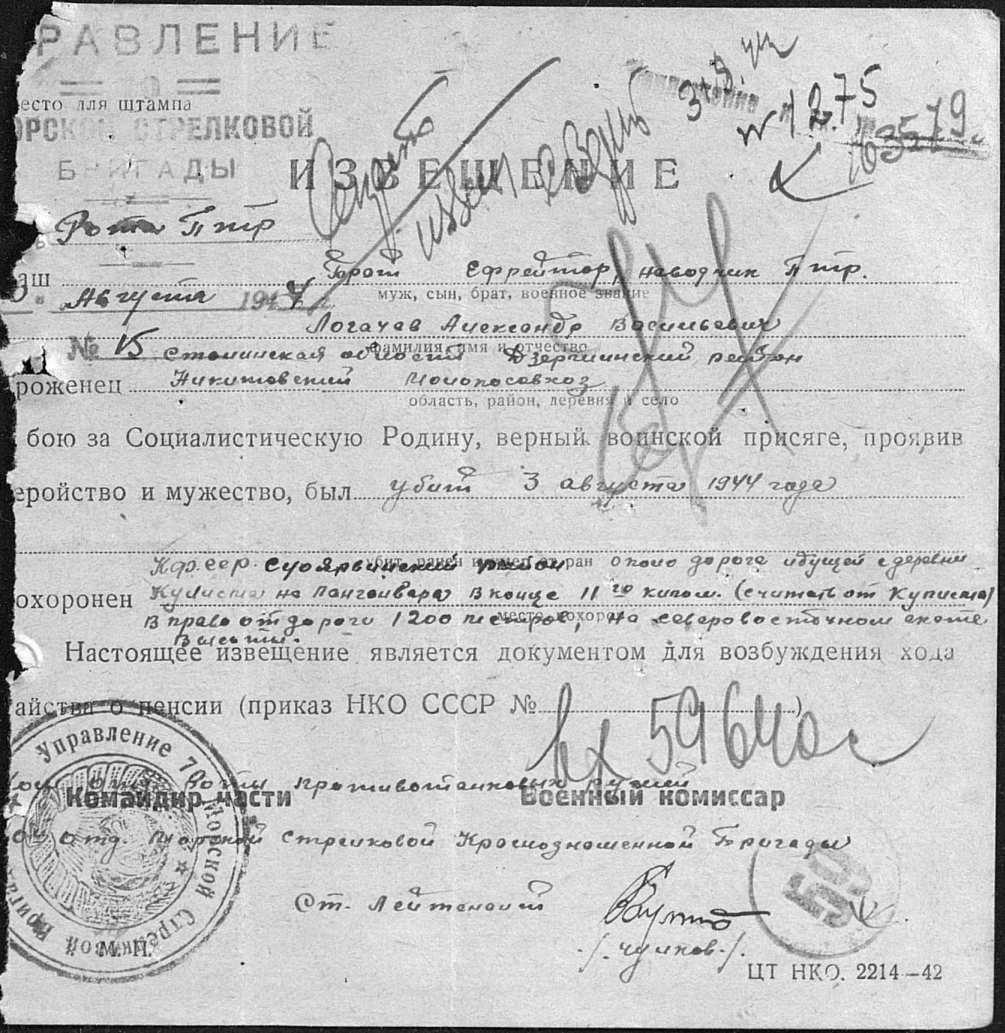 РАВЛЕНИЕ
ПО
есто для штампа
ОРСКОЙ СТРЕЛКОВОЙ
БРИГАДЫ
3
N 1275
63579
ИЗВЕЩЕНИЕ
Рота Птр
аш брат Ефрейтор, наводчик Птр.
муж, сын, брат, военное звание
Августа 1944 г.
Логачев Александр Васильевич
фамилия, имя и отчество
№ 15 Сталинская область Дзержинский район
роженец Никитовский
область, район, деревня и село
бою за Социалистическую Родину, верный воинской присяге, проявив
еройство и мужество, был убит 3 августа 1944 года
убит, ранен и умер от ран
Кфсср. Суоярвинский район около дороги идущей с деревни
охоронен Куписта на Лонгонвара в конце 11го килом. (считать от Куписта)
место похорон
В право от дороги 1200 метров, на северовосточном скате
высоты.
Настоящее извещение является документом для возбуждения хода
айства о пенсии (приказ НКО СССР № )
Вх 59640с
Управление 70 Морской Стрелковой Бригады
отд. Роты противотанковых ружей
Командир части Военный комиссар
отд. морской Стрелковой Краснознаменной Бригады
Ст. Лейтенант
/-Чулков-/
М. П.
50
ЦТ НКО. 2214—42